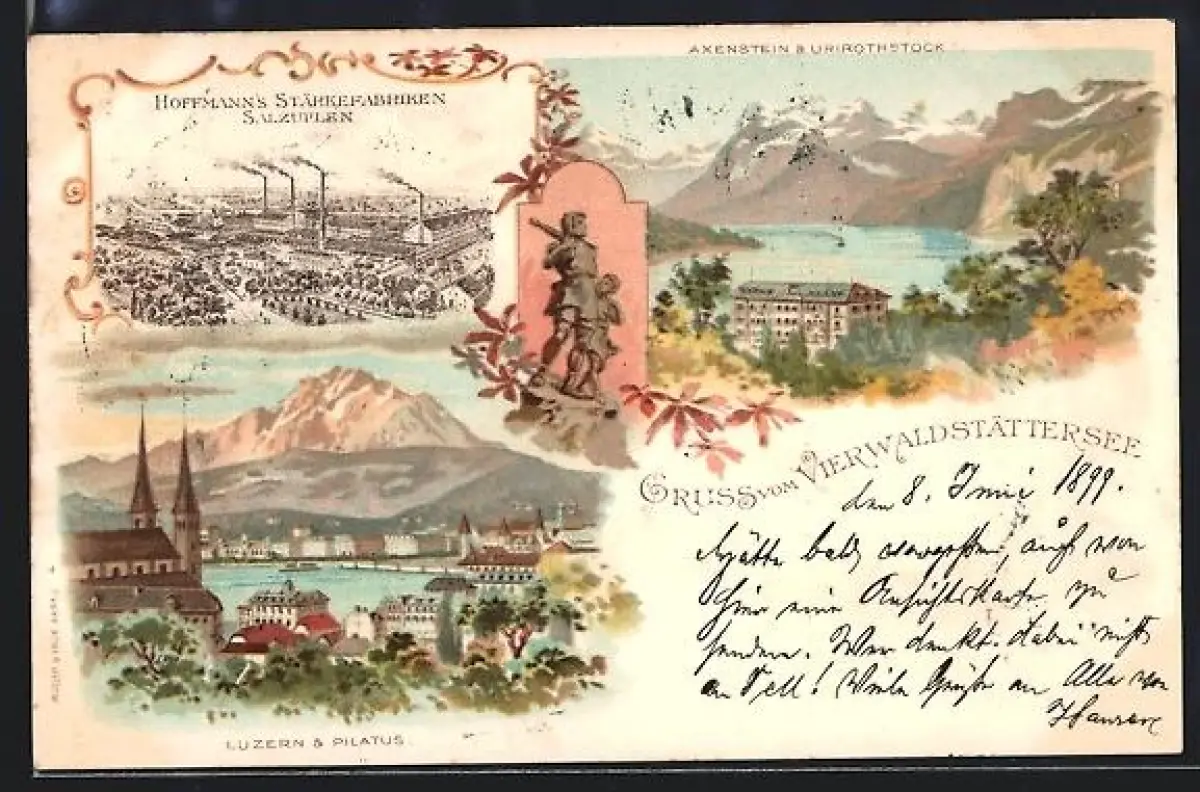 HOFFMANN'S STÄRKEFABRIKEN
SALZUFLEN
AXENSTEIN & URIROTHSTOCK
GRUSS VOM VIERWALDSTÄTTERSEE
den 8. Juni 1899.
Hätte bald vergessen, auch von
hier eine Ansichtskarte zu
senden. Wer denkt dabei nicht
an Tell! Viele Grüße an Alle von
LUZERN & PILATUS.